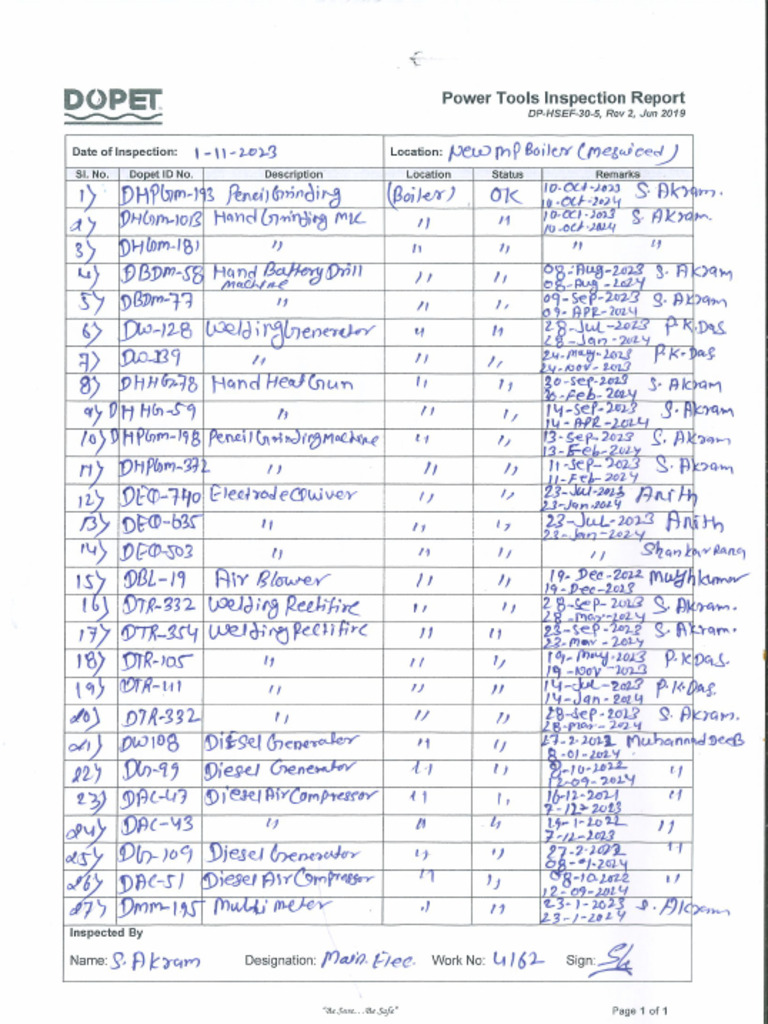 DOPET
Power Tools Inspection Report
DP-HSEF-30-5, Rev 2, Jun 2019
Date of Inspection: 1-11-2023 Location: New MP Boiler (Mesaieed)
Sl. No. Dopet ID No. Description Location Status Remarks
1) DHPGm-193 Pencil Grinding (Boiler) OK 10-Oct-2023 10-Oct-2024 S. Akram.
2) DHGm-10B Hand Grinding MK " " 10-Oct-2023 10-Oct-2024 S. Akram.
3) DHGm-181 " " " " "
4) DBDm-58 Hand Battery Drill machine " " 08-Aug-2023 08-Aug-2024 S. Akram
5) DBDm-77 " " " 09-Sep-2023 09-APR-2024 S. Akram
6) DW-128 Welding Generator " " 28-Jul-2023 28-Jan-2024 P.K.Das
7) DW-139 " " " 24-may-2023 24-nov-2023 P.K.Das
8) DHHG-78 Hand Heat Gun " " 20-sep-2023 -Feb-2024 S. Akram
9) DHHG-59 " " " 14-Sep-2023 14-APR-2024 S. Akram
10) DHPGm-198 Pencil Grinding Machine " " 13-Sep-2023 13-Feb-2024 S. Akram
11) DHPGm-372 " " " 11-Sep-2023 11-Feb-2024 S. Akram
12) DEQ-740 Electrode Quiver " " 23-Jul-2023 23-Jan-2024 Anith
13) DEQ-635 " " " 23-Jul-2023 23-Jan-2024 Anith
14) DEQ-503 " " " " Shankar
15) DBL-19 Air Blower " " 19-Dec-2022 19-Dec-2023
16) DTR-332 Welding Rectifire " " 28-Sep-2023 28-mar-2024 S. Akram.
17) DTR-354 Welding Rectifire " " -Sep-2023 -mar-2024 S. Akram.
18) DTR-105 " " " 19-may-2023 19-Nov-2023 P.K.Das.
19) DTR-111 " " " 14-Jul-2023 14-Jan-2024 P.K.Das.
20) DTR-332 " " " 28-Sep-2023 28-mar-2024 S. Akram.
21) DW108 Diesel Generator " " 27-2-2022 8-01-2024 Muhannad
22) DG-99 Diesel Generator " " 8-10-2022 12-09-2024 "
23) DAC-47 Diesel Air Compressor " " 16-12-2021 7-12-2023 "
24) DAC-43 " " " 19-1-2022 7-12-2023 "
25) DG-109 Diesel Generator " " 27-2-2022 08-01-2024 "
26) DAC-51 Diesel Air Compressor " " 08-10-2022 12-09-2024 "
27) Dmm-195 Multi meter " " 23-1-2023 23-1-2024 S. Akram
Inspected By
Name: S. Akram Designation: Main. Elec. Work No: 4162 Sign:
"Be Sure...Be Safe"
Page 1 of 1